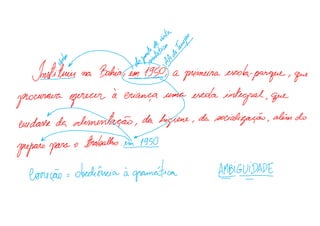 Instituiu na Bahia, em 1950, a primeira escola-parque, que
procurava oferecer à criança uma escola integral, que
cuidasse da alimentação, da higiene, da socialização, além do
preparo para o trabalho em 1950
Correção = obediência à gramática
AMBIGUIDADE